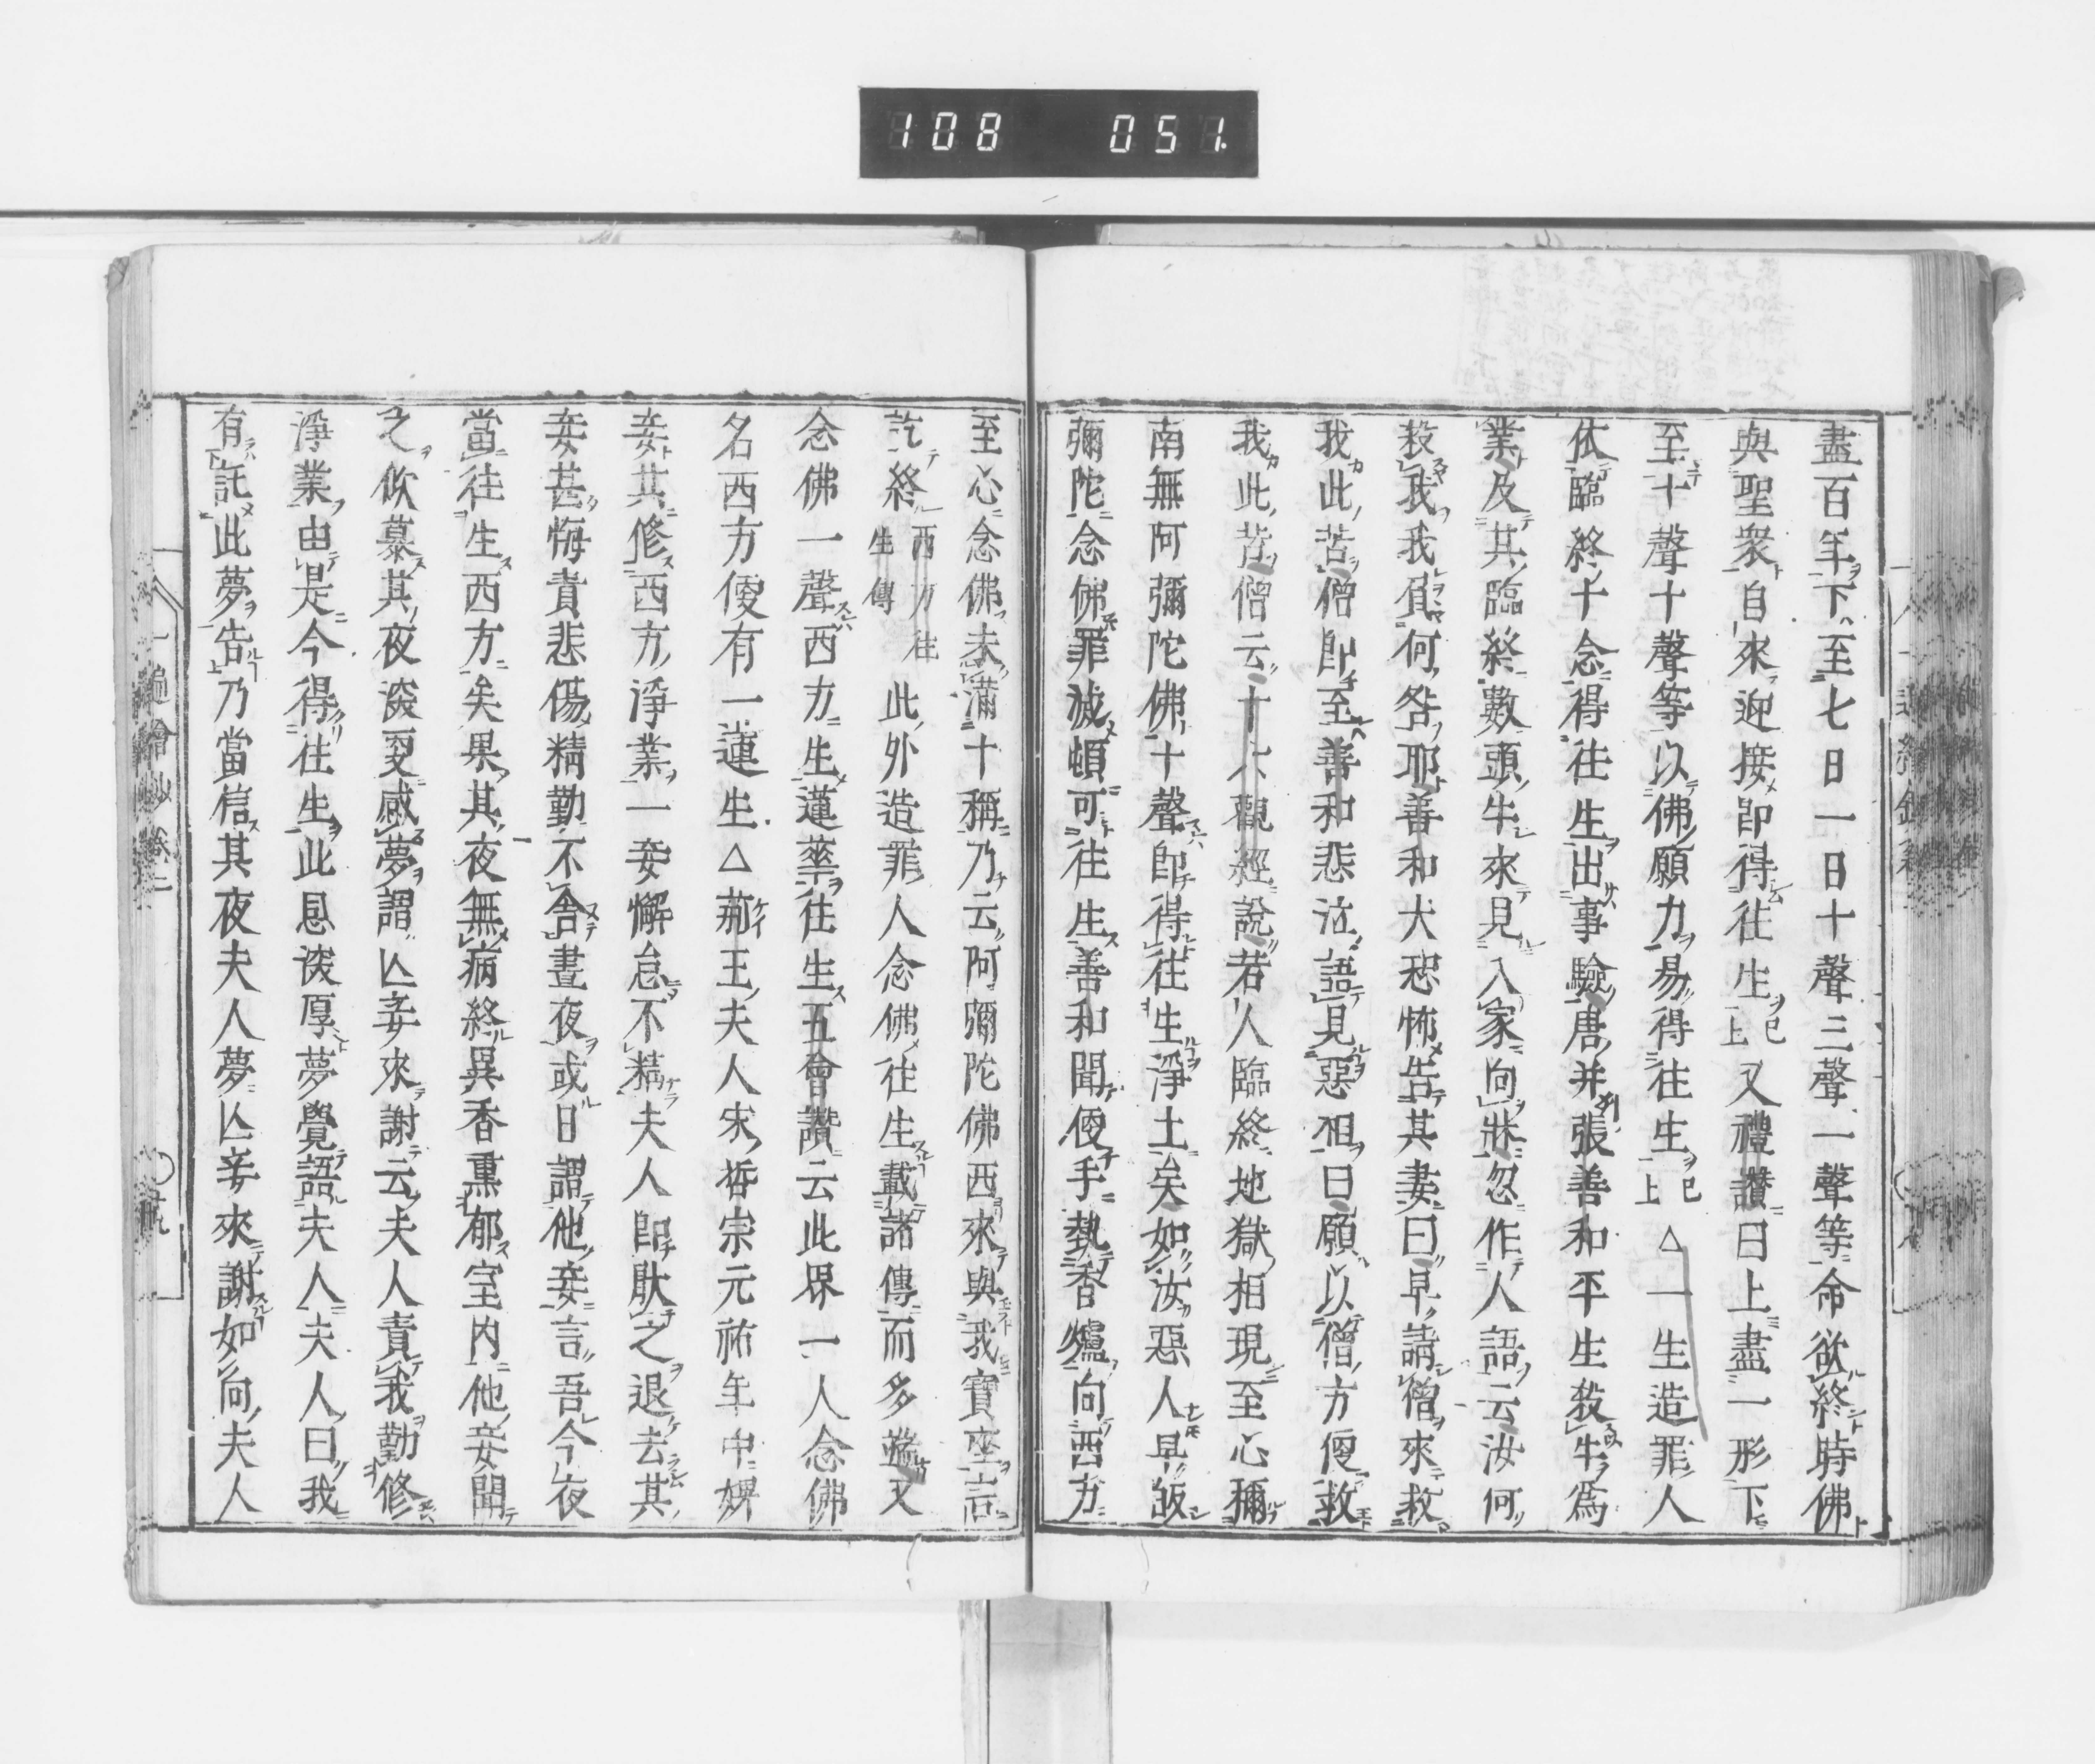 108 051
盡百年下至七日一日十聲三聲一聲等命欲終時佛
與聖衆自來迎接即得往生已上又禮讚曰上盡一形下
至十聲十聲等以佛願力易得往生已上△一生造罪人
依臨終十念得往生出事驗唐并張善和平生殺牛爲
業及其臨終數頭牛來見入家向牀忽作人語云汝何
殺我我負何咎耶善和大恐怖告其妻曰早請僧來救
我此苦僧即至善和悲泣語見惡相曰願以僧方便救
我此苦僧云十六觀經說若人臨終地獄相現至心稱
南無阿彌陀佛十聲即得往生淨土矣如汝惡人早皈
彌陀念佛罪滅頓可往生善和聞便手執香爐向西方
至心念佛未滿十稱乃云阿彌陀佛西來與我寶座言
訖終西方往生傳此外造罪人念佛往生載諸傳而多遊又
念佛一聲西方生蓮華往生五會讚云此界一人念佛
名西方便有一蓮生△荊王夫人宋哲宗元祐年中婢
妾共修西方淨業一妾懈怠不精夫人即耿之退去其
妾甚悔責悲傷精勤不舍晝夜或日謂他妾言吾今夜
當往生西方矣果其夜無病終異香熏郁室内他妾聞
之欽慕其夜深更感夢謂亾妾來謝云夫人責我勤修
淨業由是今得往生此恩深厚夢覺語夫人夫人曰我
有託此夢告乃當信其夜夫人夢亾妾來謝如向夫人
一遍繪抄卷二